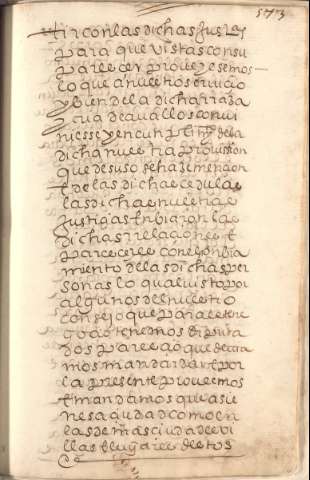 573
tir con las dichas Jus
para que vistas con su
parecer proveyesemos
lo que a nuestro servicio
y bien de la dicha rraza
y cria de cavallos convi
niesse y en cunplimy de la
dicha nuestra provission
que de suso se haze mencion
E de las dichas cedulas
las dichas nuestras
justiçias enbiaron las
dichas rrelaçiones E
pareceres con el nonbra
miento de las dichas per
sonas lo qual visto por
algunos del nuestro
consejo que para este ne
goçio tenemos diputa
dos pareçio que devia
mos mandar dar E por
la presente proveemos
E mandamos que a si e
nesa çiudad como en
las demas ciudades vi
llas E lugares destos